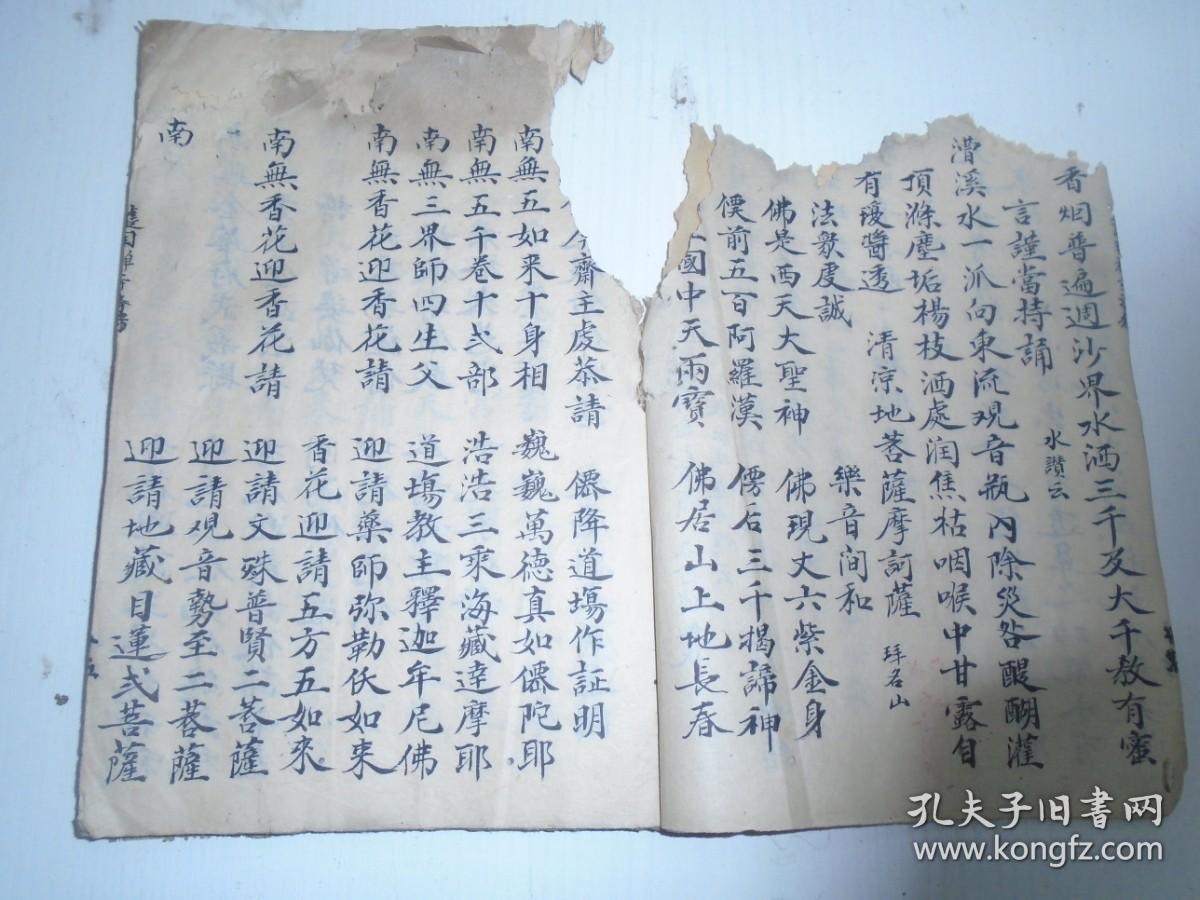 香烟普遍週沙界水洒三千及大千教有蜜
言謹當持誦 水讚云
漕溪水一派向東流观音瓶内除災咎醍醐灌
頂滌塵垢楊枝洒處润焦枯咽喉中甘露自
有瓊醬透 清凉地菩薩摩訶薩 拜名山
法衆虔誠 樂音间和
佛是西天大聖神 佛現丈六紫金身
僾前五百阿羅漢 僗后三千揭諦神
國中天雨寳 佛居山上地長春
齋主虔恭請 僊降道塲作証明
南無五如来十身相 巍巍萬德真如僊陀耶
南無五千巻十弍部 浩浩三乘海藏達摩耶
南無三界師四生父 道塲教主釋迦牟尼佛
南無香花迎香花請 迎請藥師弥勒仸如来
香花迎請五方五如來
南無香花迎香花請 迎請文殊普賢二菩薩
迎請观音勢至二菩薩
南 迎請地藏目連弍菩薩
孔夫子旧书网
www.kongfz.com